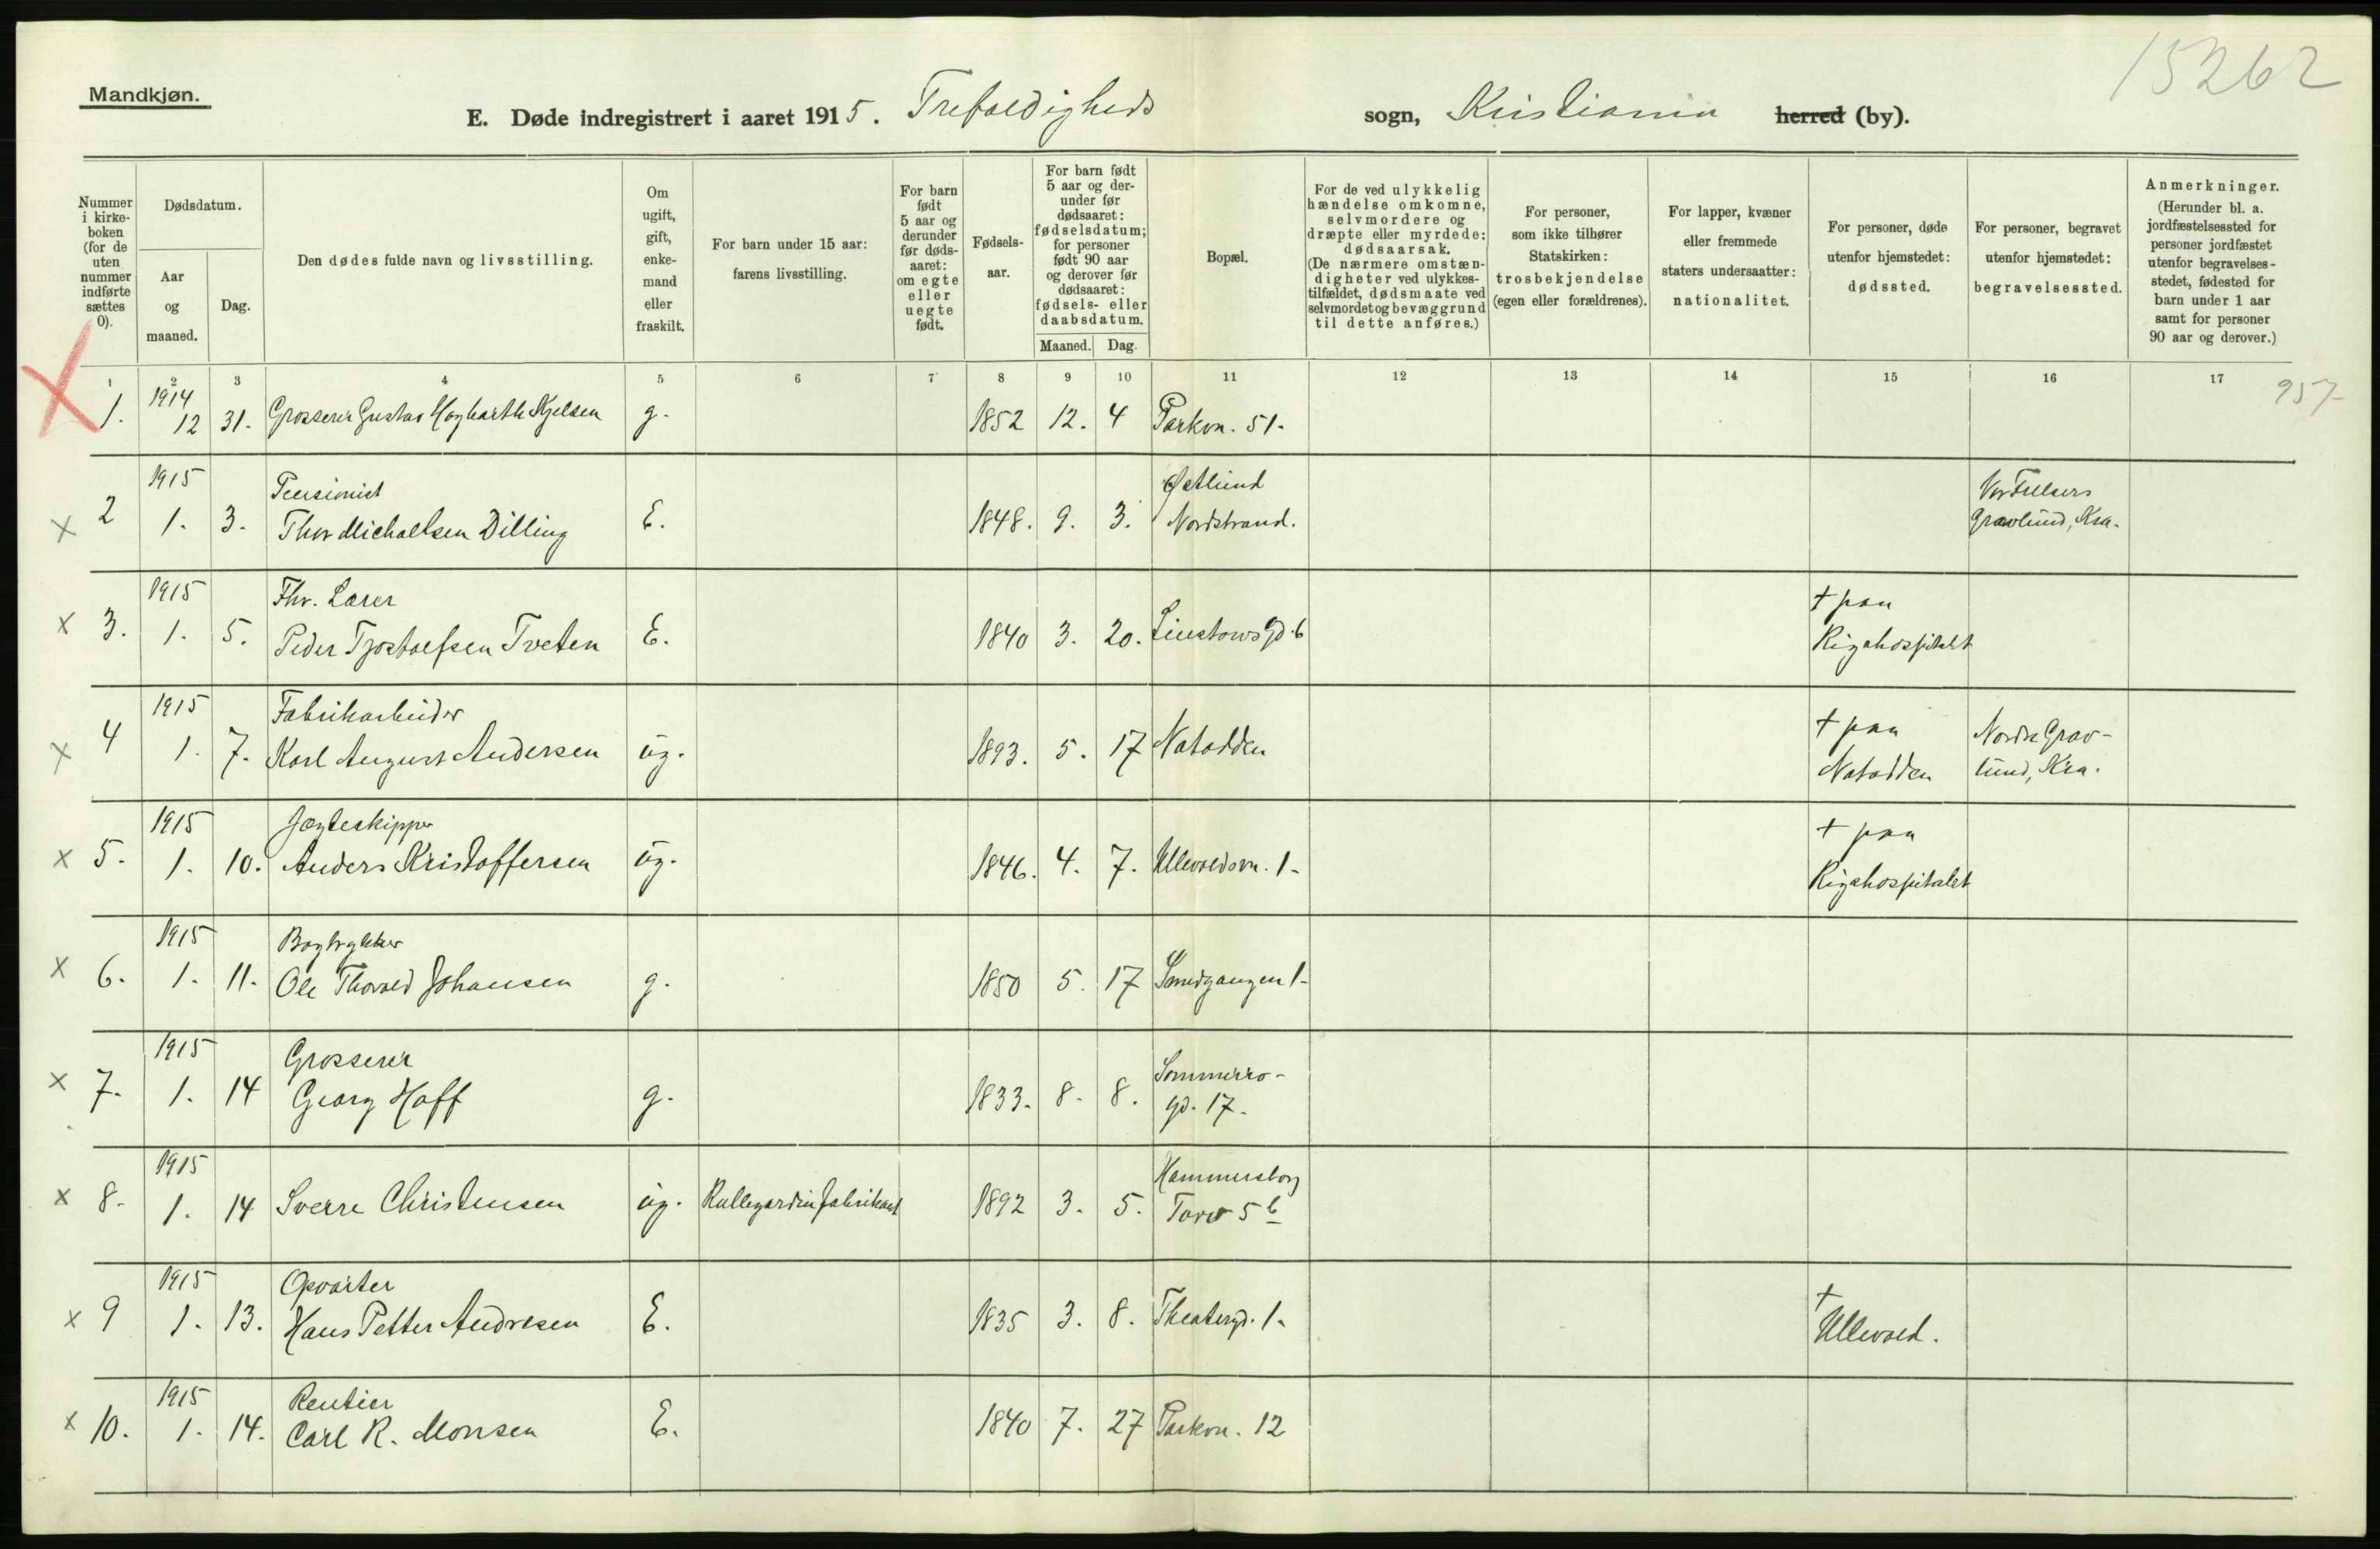 15262
Mandkjøn.
E. Døde indregistrert i aaret 1915. Trefoldigheds sogn, Kristiania herred (by).
Nummer i kirkeboken (for de uten nummer indførte sættes 0).
Dødsdatum.
Aar og maaned.
Dag.
Den dødes fulde navn og livsstilling.
Om ugift, gift, enkemand eller fraskilt.
For barn under 15 aar: farens livsstilling.
For barn født 5 aar og derunder før dødsaaret: om egte eller uegte født.
Fødselsaar.
For barn født 5 aar og derunder før dødsaaret: fødselsdatum; for personer født 90 aar og derover før dødsaaret: fødsels- eller daabsdatum.
Maaned. Dag.
Bopæl.
For de ved ulykkelig hændelse omkomne, selvmordere og dræpte eller myrdede: dødsaarsak. (De nærmere omstændigheter ved ulykkestilfældet, dødsmaate ved selvmordet og bevæggrund til dette anføres.)
For personer, som ikke tilhører Statskirken: trosbekjendelse (egen eller forældrenes).
For lapper, kvæner eller fremmede staters undersaatter: nationalitet.
For personer, døde utenfor hjemstedet: dødssted.
For personer, begravet utenfor hjemstedet: begravelsessted.
Anmerkninger. (Herunder bl. a. jordfæstelsessted for personer jordfæstet utenfor begravelsesstedet, fødested for barn under 1 aar samt for personer 90 aar og derover.)
1 2 3 4 5 6 7 8 9 10 11 12 13 14 15 16 17
957-
X 1. 1914 12 31. Grosserer Gustav Hogbarth Kjelsen g. 1852 12. 4 Parkvn. 51-
x 2 1915 1. 3. Pensionist Thor Michaelsen Dilling E. 1848. 9. 3. Østlund Nordstrand. Vor Frelsers Gravlund, Kra.
x 3. 1915 1. 5. Fhv. Lærer Peder Tjostolfsen Tveten E. 1840 3. 20. Linstows gd. 6 † paa Rigshospitalet
x 4 1915 1. 7. Fabrikarbeider Karl August Andersen ug. 1893. 5. 17 Notodden † paa Notodden Nordre Gravlund, Kra.
x 5. 1915 1. 10. Jægteskipper Anders Kristoffersen ug. 1846. 4. 7. Ullevoldsvn. 1- † paa Rigshospitalet
x 6. 1915 1. 11. Bogtrykker Ole Thorvald Johansen g. 1850 5. 17 Smedgangen 1-
x 7. 1915 1. 14 Grosserer Georg Hoff g. 1833. 8. 8. Sommerro-gd. 17-
x 8. 1915 1. 14 Sverre Christensen ug. Rullegardinfabrikant 1892 3. 5. Hammersborg Torv 5 b
x 9 1915 1. 13. Opvarter Hans Petter Andresen E. 1835 3. 8. Theatergd. 1- † Ullevold.
x 10. 1915 1. 14. Rentier Carl R. Monsen E. 1840 7. 27 Parkvn. 12